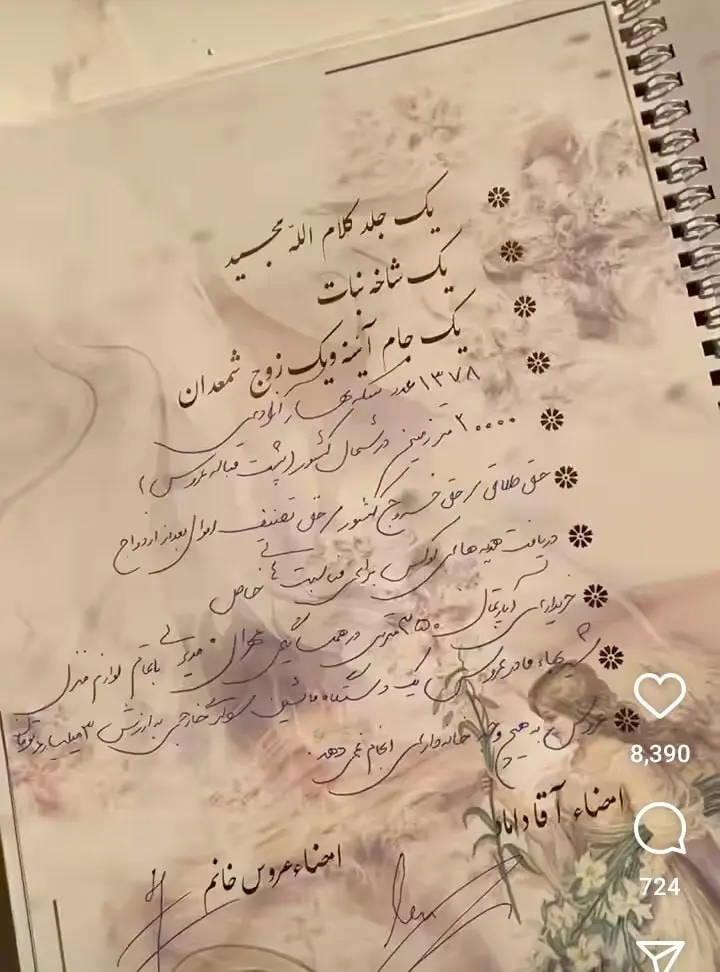 یک جلد کلام الله مجید
یک شاخه نبات
یک جام آئینه و یک زوج شمعدان
۱۳۷۸ عدد سکه بهار آزادی
۲۰۰۰۰ متر زمین در شمال کشور (پشت قباله عروس)
حق طلاق / حق خروج کشور / حق تصنیف اموال بعد از ازدواج
دریافت هدیه های لوکس برای مناسبت های خاص
خریداری آپارتمان ۳۵۰ متری در همسایگی تهران با تمام لوازم منزل
شیربهاء مادر عروس یک دستگاه ماشین سواری خارجی به ارزش ۳ میلیارد تومان
عروس به هیچ وجه خانه داری انجام نمی دهد.
امضاء آقا داماد
امضاء عروس خانم
8,390
724